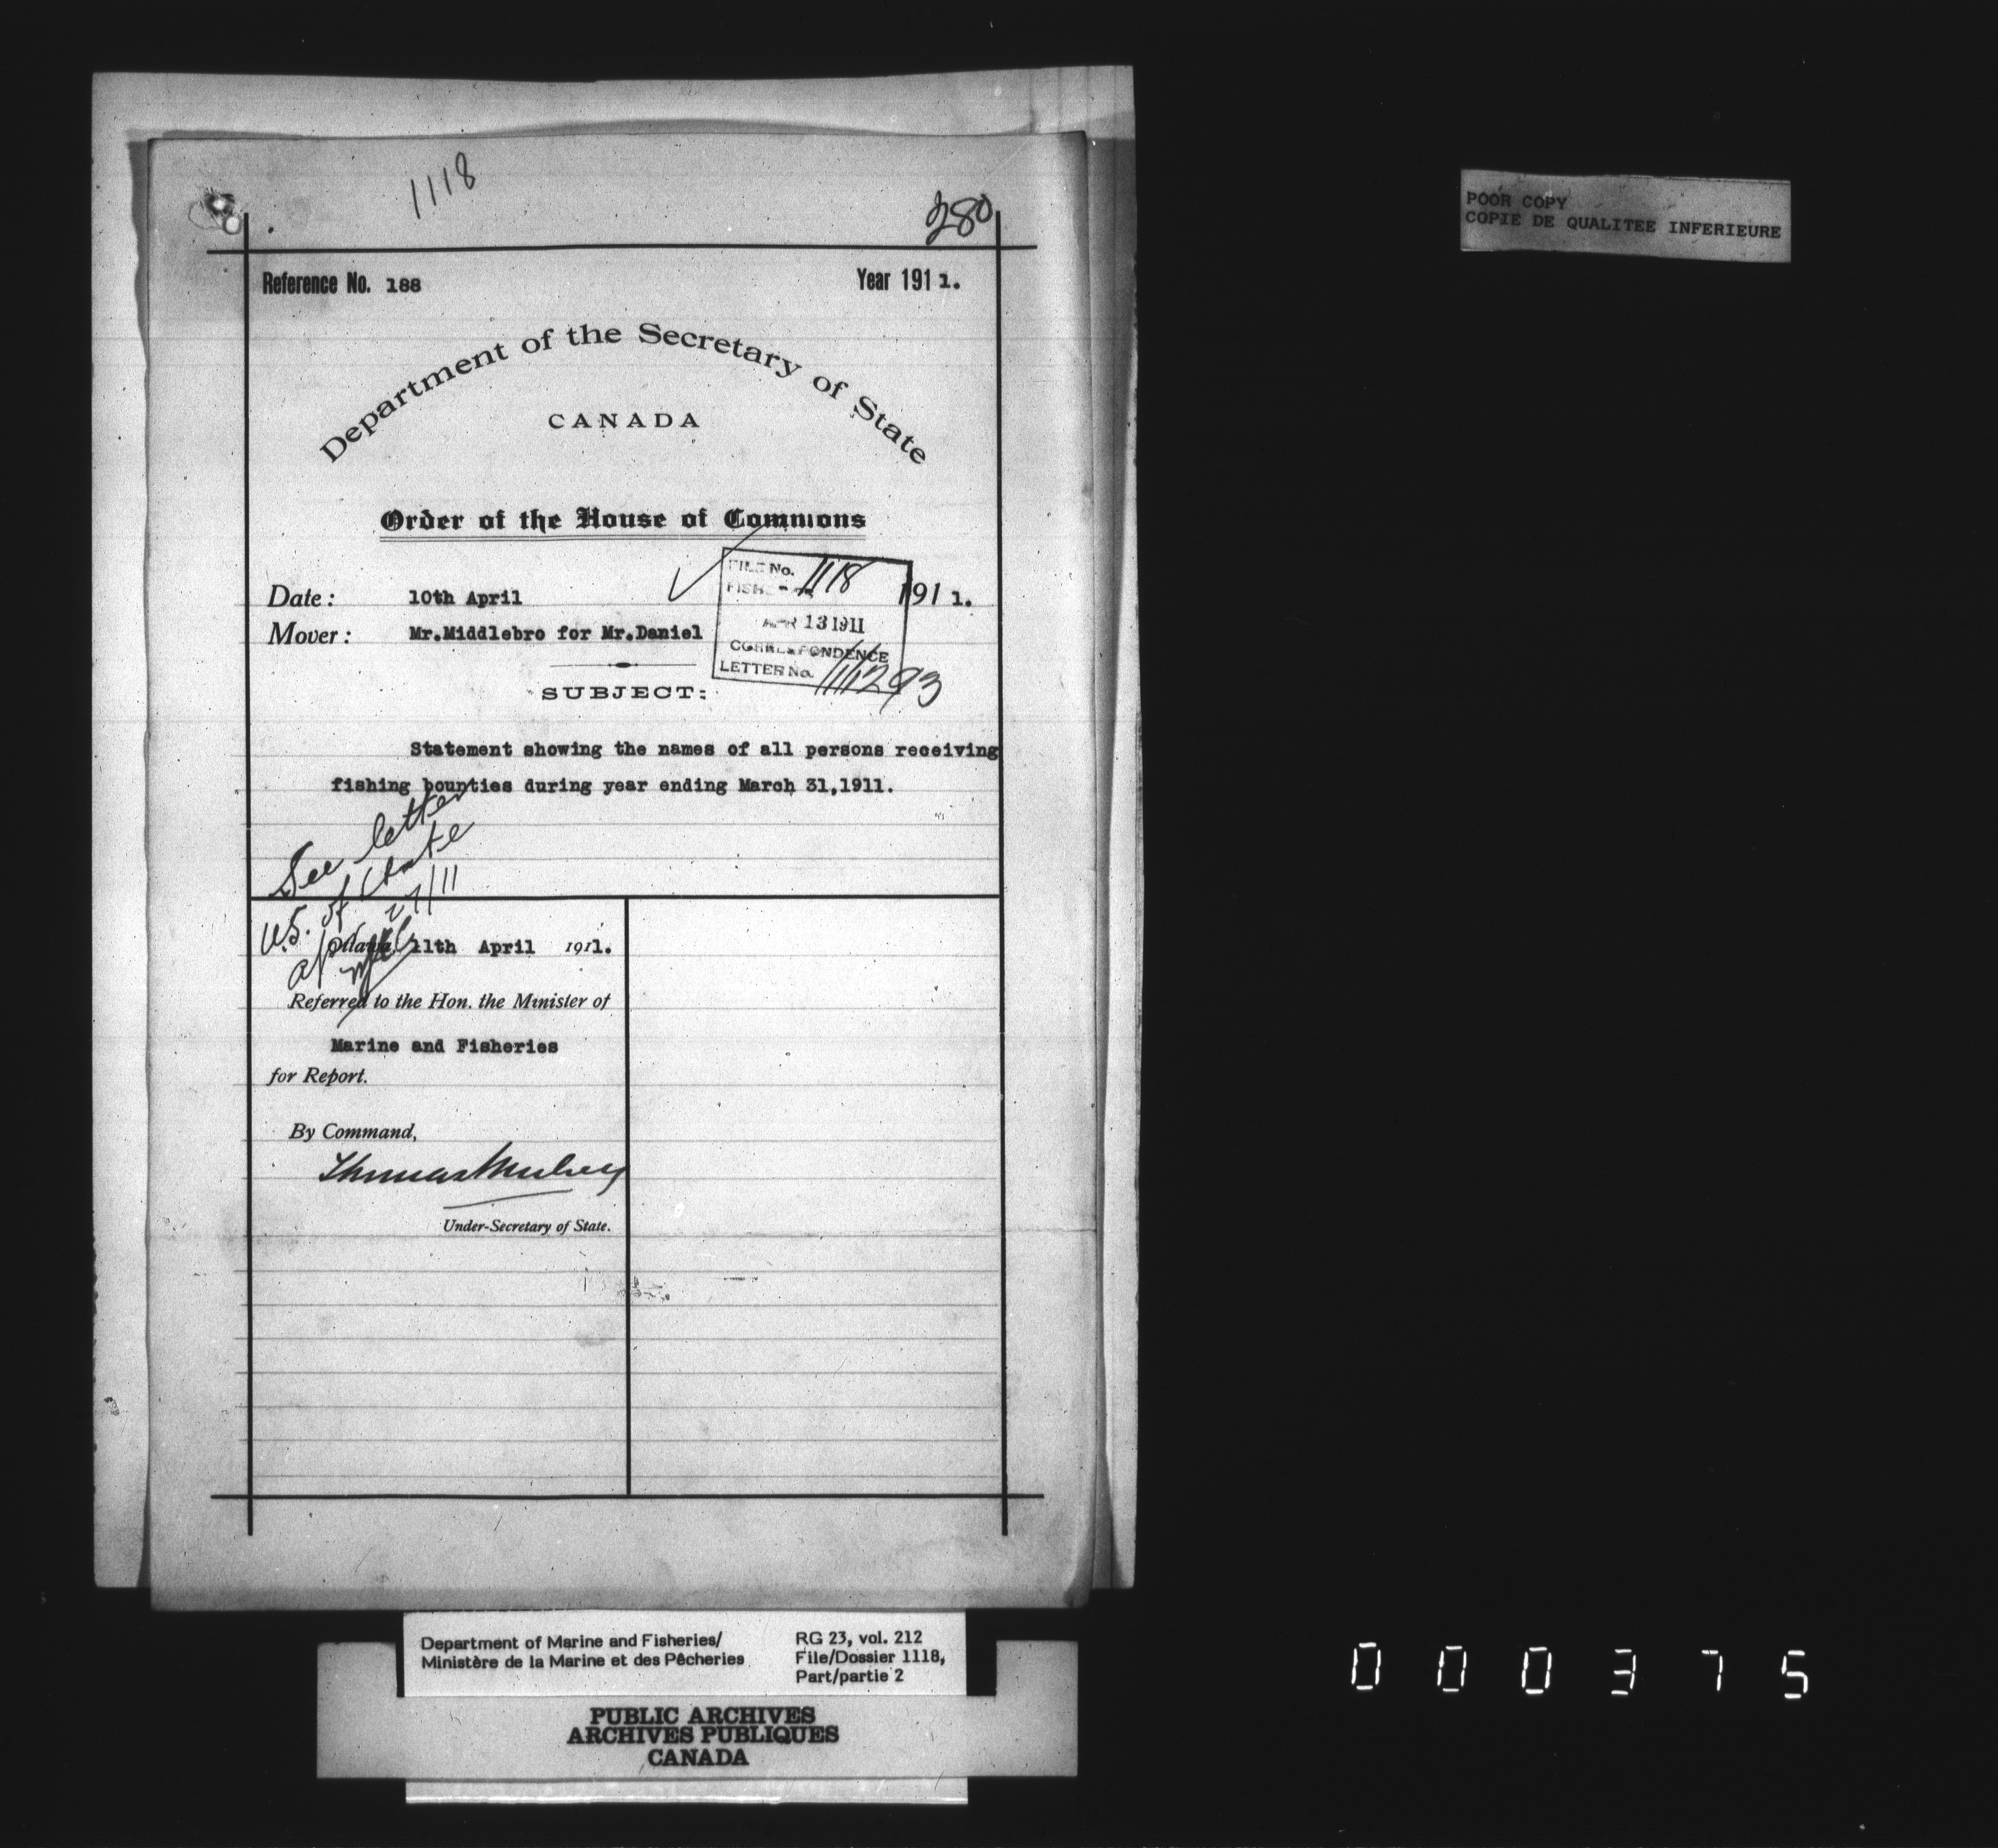 1118
280
Reference No. 188 Year 1911.
Department of the Secretary of State
CANADA
Order of the House of Commons
FILE No. 1118
Date: 10th April 1911.
APR 13 1911
Mover: Mr.Middlebro for Mr.Daniel
CORRESPONDENCE
LETTER No.
SUBJECT:
Statement showing the names of all persons receiving
fishing bounties during year ending March 31,1911.
See letter
U.S. of State
Ottawa, 11th April 1911.
Referred to the Hon. the Minister of
Marine and Fisheries
for Report.
By Command,
Thomas Mulvey
Under-Secretary of State.
POOR COPY
COPIE DE QUALITEE INFERIEURE
Department of Marine and Fisheries/
Ministère de la Marine et des Pêcheries
RG 23, vol. 212
File/Dossier 1118,
Part/partie 2
PUBLIC ARCHIVES
ARCHIVES PUBLIQUES
CANADA
000375